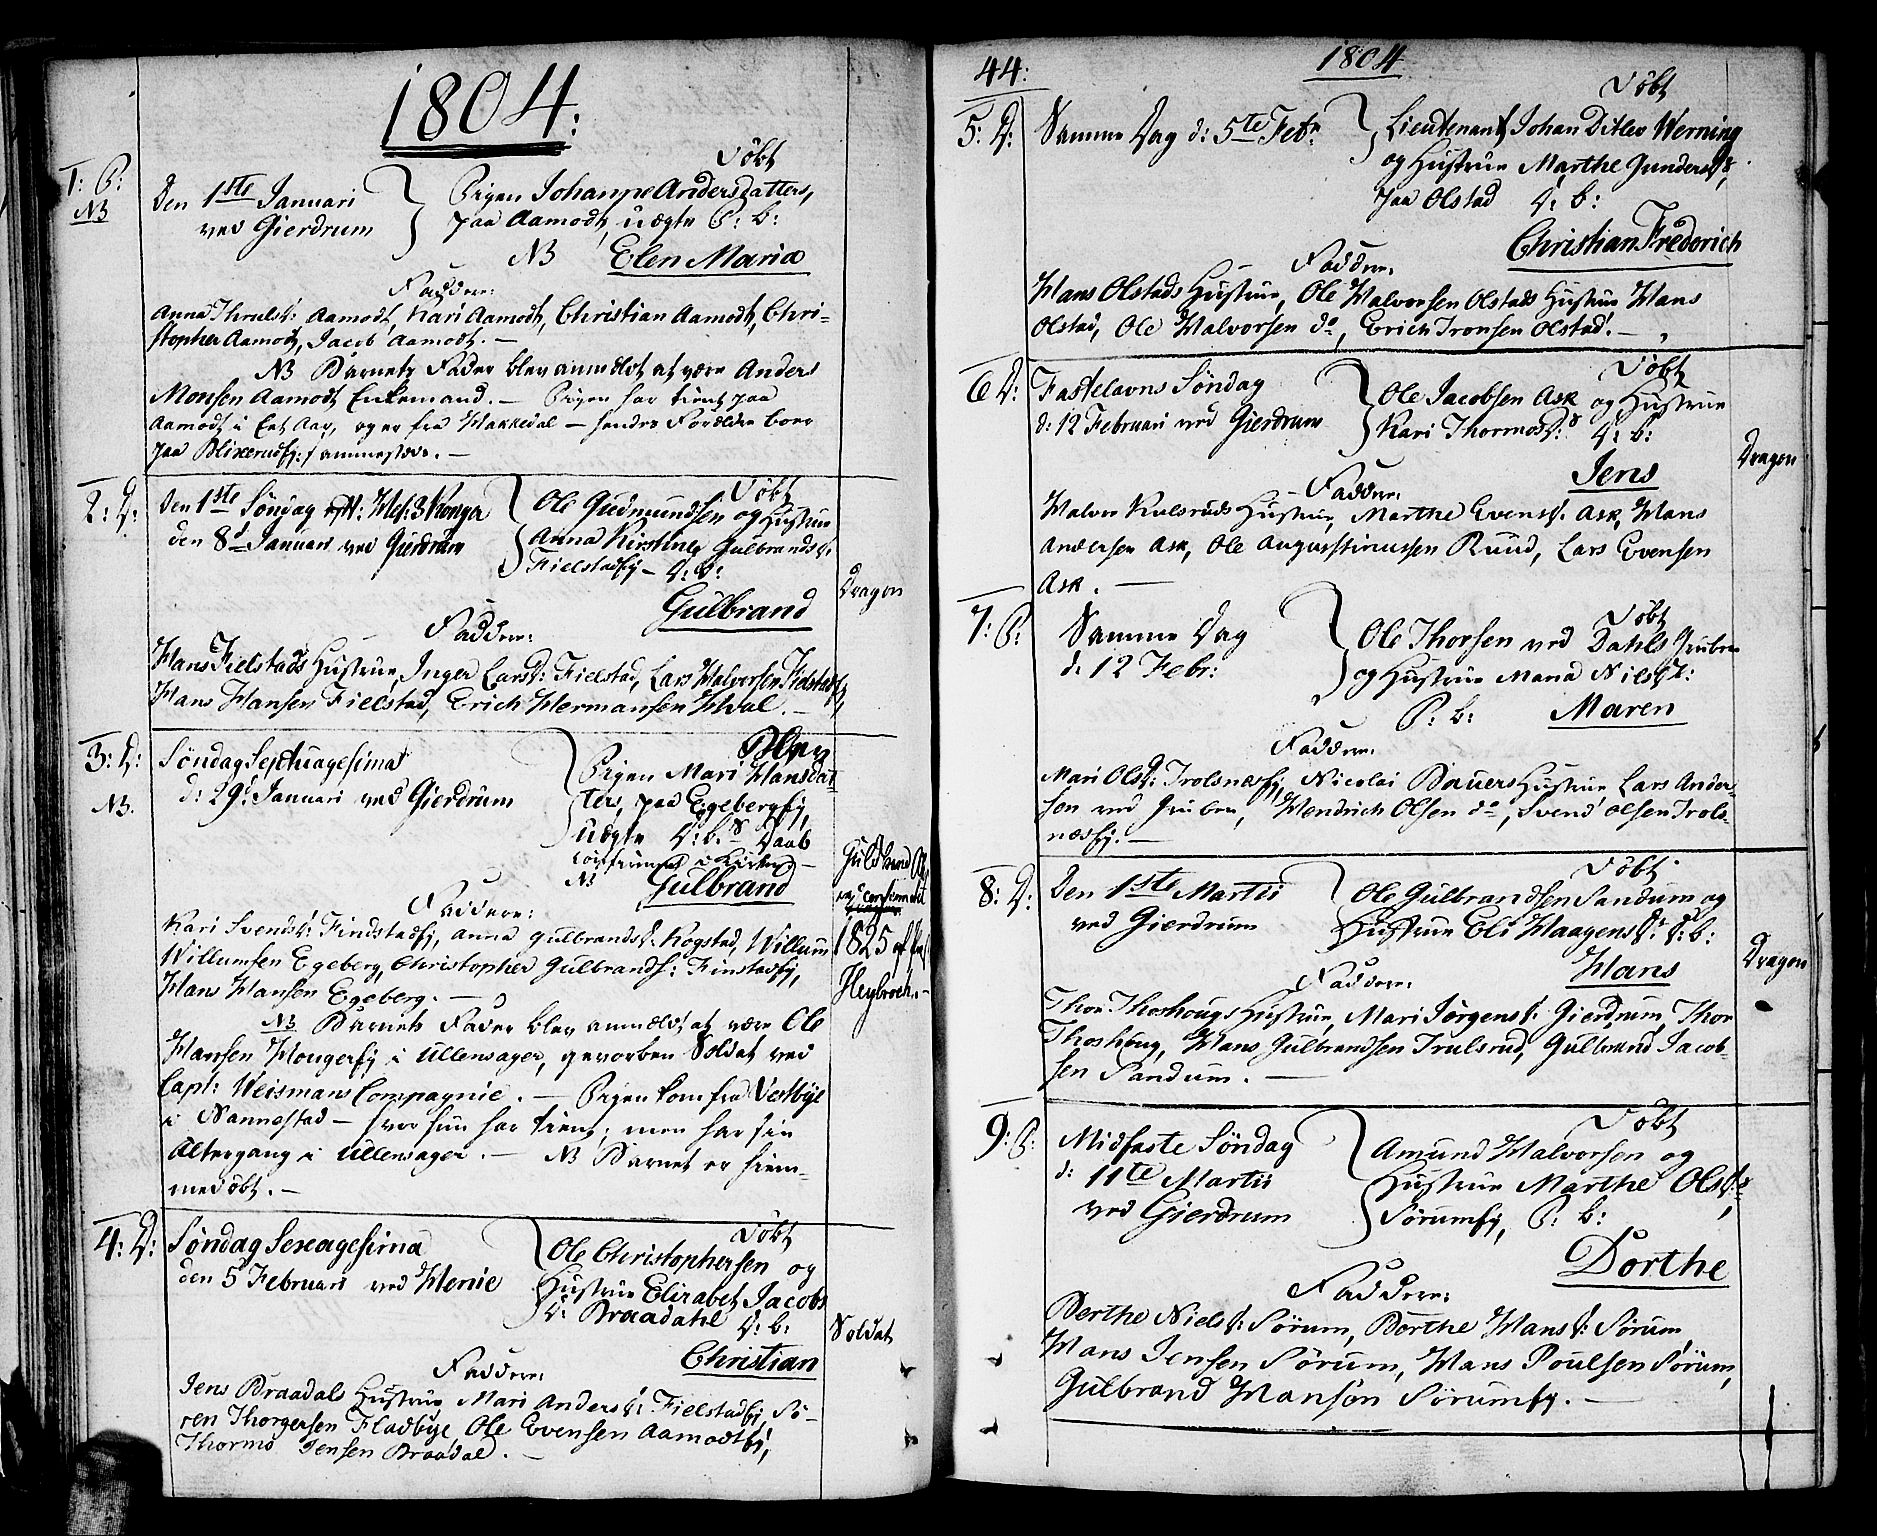 1804.
1: P:
NB
Døbt
Den 1ste Januari
ved Gierdrum
Pigen Johanne Andersdatters,
paa Aamodt, uægte P: b:
NB Elen Maria
Faddere:
Anna Thruls: Aamodt, Kari Aamodt, Christian Aamodt, Chri-
stopher Aamodt, Jacob Aamodt. -
NB Barnets Fader blev anmeldt at være Anders
Monsen Aamodt Enkemand. - Pigen har tient paa
Aamodt i Eet Aar, og er fra Hakkedal - hendes Forældre boer
paa
2: D:
Døbt
Den 1ste Søndag
den 8d Januari ved Gierdrum
Ole Gudmundsen og Hustrue
Anna Kirstine Gulbrandsd:
Fielstadej - D: b:
Gulbrand
Dragon
Faddere:
Hans Fielstads Hustrue, Inger Larsd: Fielstad, Lars Halvorsen Fielstadej,
Hans Hansen Fielstad, Erich Hermansen Hval. -
3: D:
NB.
Søndag Septuagesima
d: 29d Januari ved Gierdrum
Pigen Mari Hansdat-
ters, paa Egebergej,
uægte D: b: Daab
confirmeret i Kirken -
NB Gulbrand
Faddere:
Kari Svendsd: Findstadej, Anna Gulbrandsd: Kogstad, Willum
Willumsen Egeberg, Christopher Gulbrands: Finstadej,
Hans Hansen Egeberg. -
Gulbrand
confirmeret
1825 af
Heybroch. -
NB Barnets Fader blev anmeldt at være Ole
Hansen Hougerej i Ullensager, gevorben Soldat ved
Capt: Weismans Compagnie. - Pigen kom fra Vestbye
i Nannestad - hvor hun har tient; men har sin
Altergang i Ullensager. - NB Barnet er hiem-
medøbt. -
4: D:
Døbt
Søndag Sexagesima
den 5 Februari ved Henie
Ole Christophersen og
Hustrue Elizabet Jacobs
D: Braadahl D: b:
Christian
Soldat
Faddere:
Jens Braadals Hustrue, Mari Andersd: Fielstadej, Sø-
ren Thorgersen Fladbye, Ole Evensen Aamodtej,
Thormo Jensen Braadal. -
44:
1804
5: D:
Døbt
Samme Dag d: 5te Febr:
Lieutenant Johan Ditlev Werning
og Hustrue Marthe Gundersd:
paa Olstad D: b:
Christian Frederich
Faddere:
Hans Olstads Hustrue, Ole Halvorsen Olstads Hustrue Hans
Olstad, Ole Halvorsen do, Erich Tronsen Olstad. -
6 D:
Døbt
Fastelavns Søndag
d: 12 Februari ved Gierdrum
Ole Jacobsen Ask og Hustrue
Kari Thormosd: D: b:
Jens
Dragon
Faddere:
Halvor Kulsruds Hustrue, Marthe Evensd: Ask, Hans
Andersen Ask, Ole Augustinussen Ruud, Lars Evensen
Ask. -
7: P:
Døbt
Samme Dag
d: 12 Febr:
Ole Thorsen ved Dahls Gruben
og Hustrue Maria Nielsd:
P: b: Maren
Faddere:
Mari Olsd: Trolsnæsej, Nicolai Bauers Hustrue Lars Ander-
sen ved Gruben, Hendrich Olsen do, Svend Olsen Trols-
næsej. -
8: D:
Døbt
Den 1ste Martii
ved Gierdrum
Ole Gulbrandsen Sandum og
Hustrue Eli Haagensd: D: b:
Hans
Dragon
Faddere:
Thor Thoshougs Hustrue, Mari Jørgensd: Gierdrum, Thor
Thoshoug, Hans Gulbrandsen Trulsrud, Gulbrand Jacob-
sen Sandum. -
9: P:
Døbt
Midfaste Søndag
d: 11te Martii
ved Gierdrum
Amund Halvorsen og
Hustrue Marthe Olsd:
Sørumej, P: b:
Dorthe
Faddere:
Berthe Nielsd: Sørum, Dorthe Hansd: Sørum,
Hans Jensen Sørum, Hans Poulsen Sørum,
Gulbrand Hansøn Sørumej. -